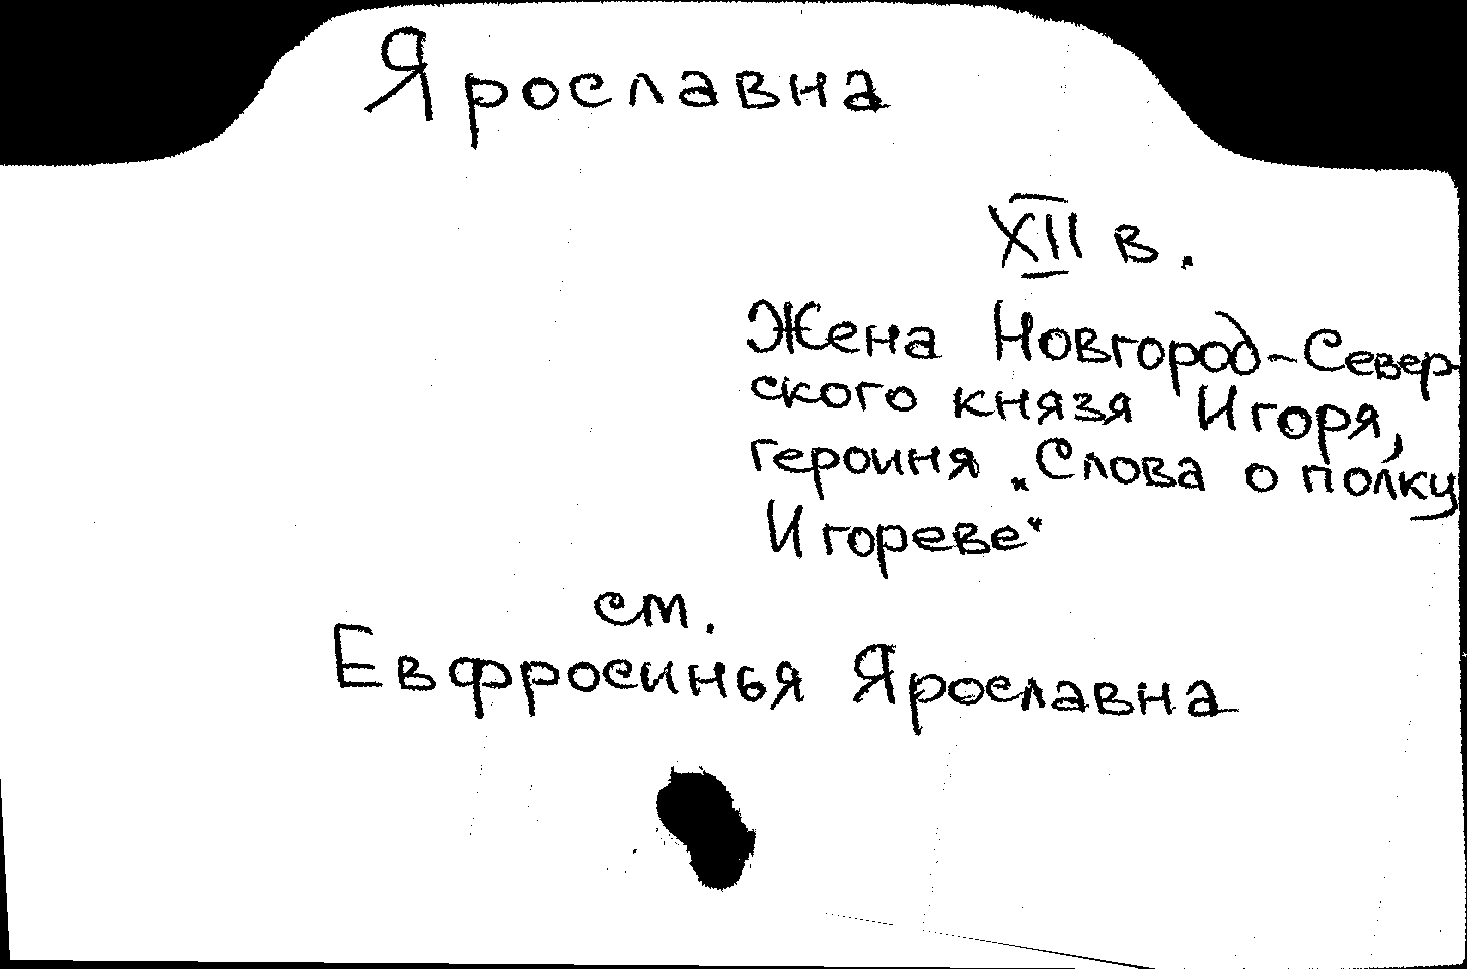 Ярославна
XII в.
Жена Новгород-Север-
ского князя Игоря,
героиня „Слова о полку
Игореве“
см.
Евфросинья Ярославна